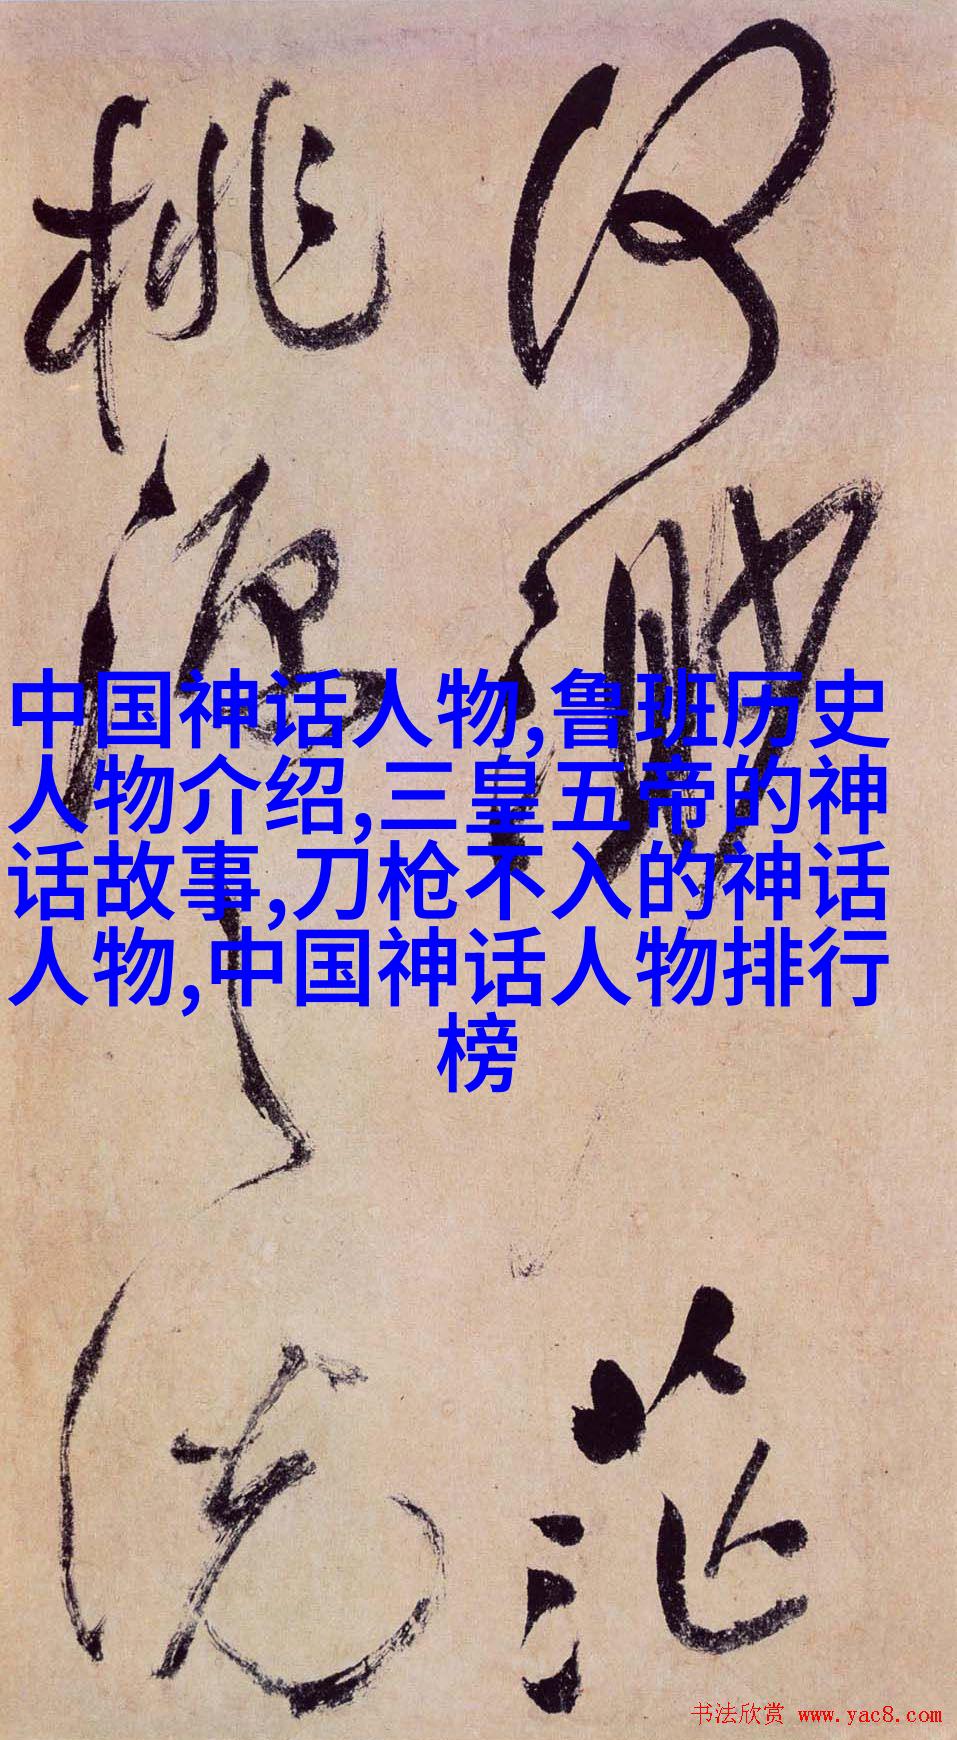 何渺茫
桃源之説
中国神话人物,鲁班历史
人物介绍,三皇五帝的神
话故事,刀枪不入的神话
人物,中国神话人物排行
榜
书法欣赏 www.yac8.com